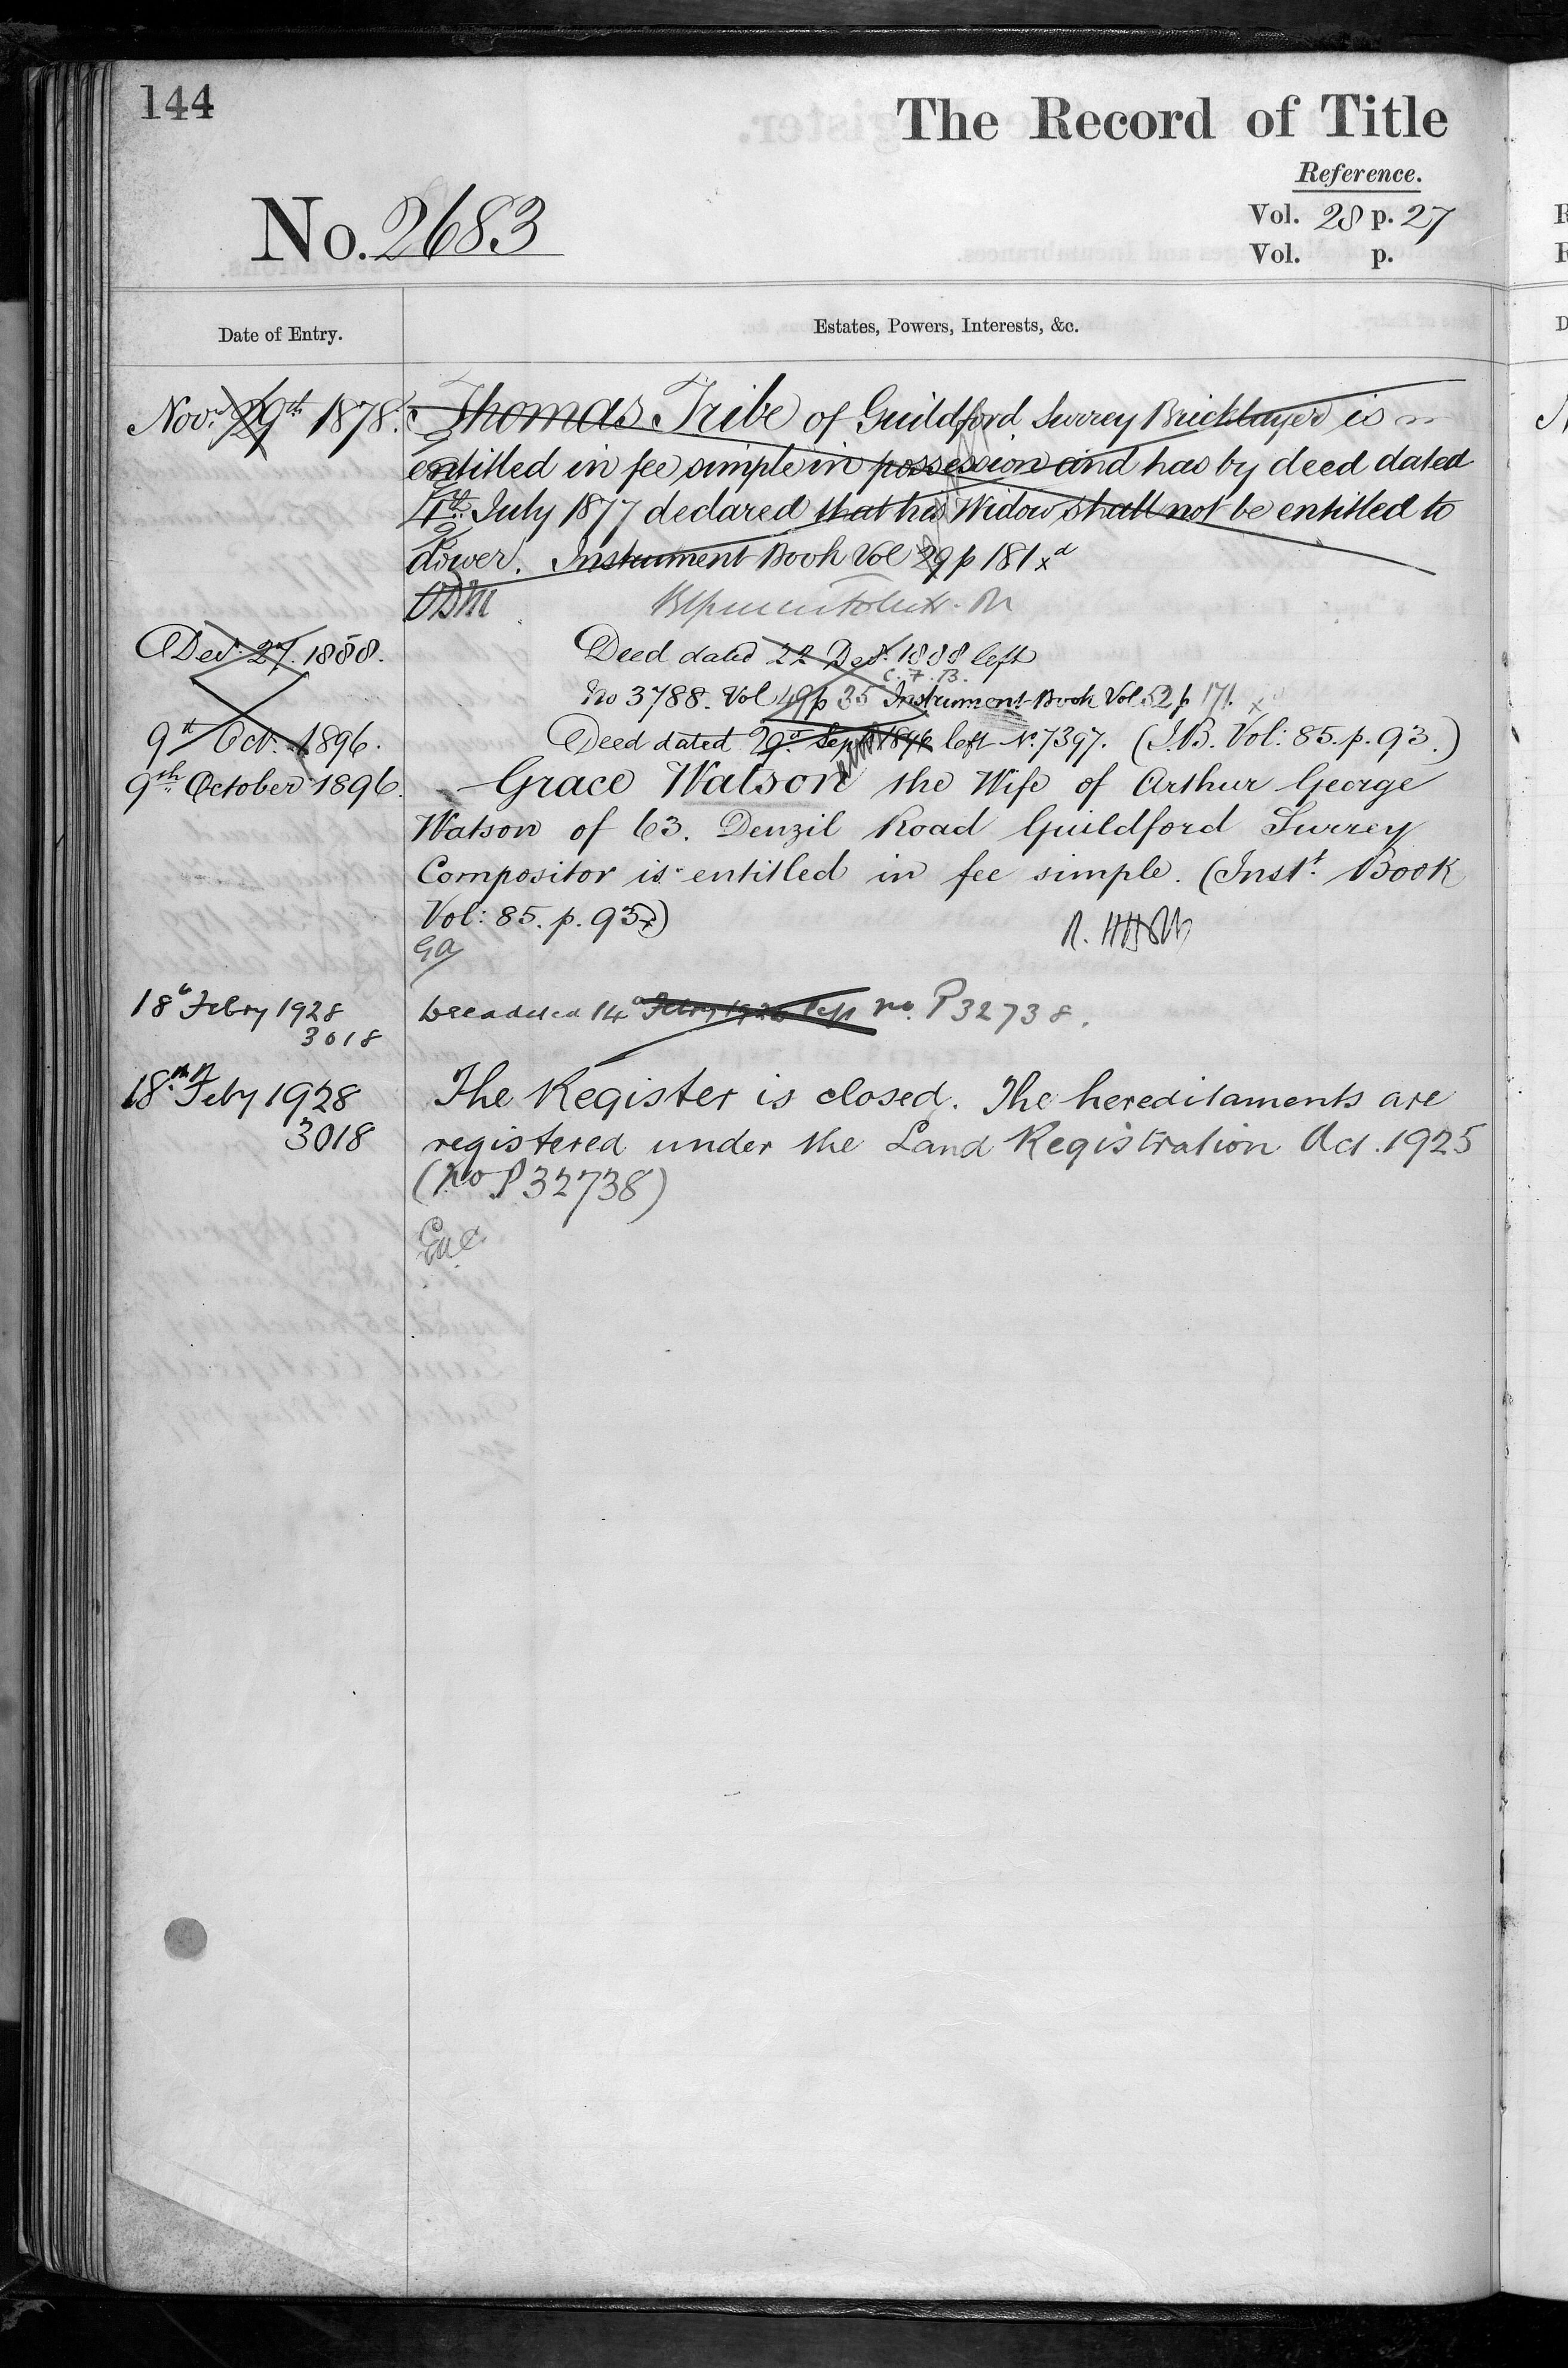 144
The Record of Title
Reference.
No. 2683
Vol. 28 p. 27
Vol. p.
Date of Entry.
Estates, Powers, Interests, &c.
Novr. 29th 1878. Thomas Tribe of Guildford Surrey Bricklayer is
entitled in fee simple in possession and has by deed dated
4th July 1877 declared that his Widow shall not be entitled to
dower. Instrument Book Vol 29 p 181
Decr. 27. 1888. Deed dated 22 Decr. 1888 left
C. F. B.
No 3788. Vol 49 p 35 Instrument Book Vol 52 p 171.
9th Oct. 1896. Deed dated 29th Sept 1896 left No. 7397. (I.B. Vol: 85. p. 93.)
9th October 1896. Grace Watson the Wife of Arthur George
Watson of 63. Denzil Road Guildford Surrey
Compositor is entitled in fee simple. (Inst. Book
Vol: 85. p. 93)
GA
18 Febry 1928 14 Febry 1928 no. P32738.
3018
18th Feby 1928 The Register is closed. The hereditaments are
3018 registered under the Land Registration Act. 1925
(No P32738)